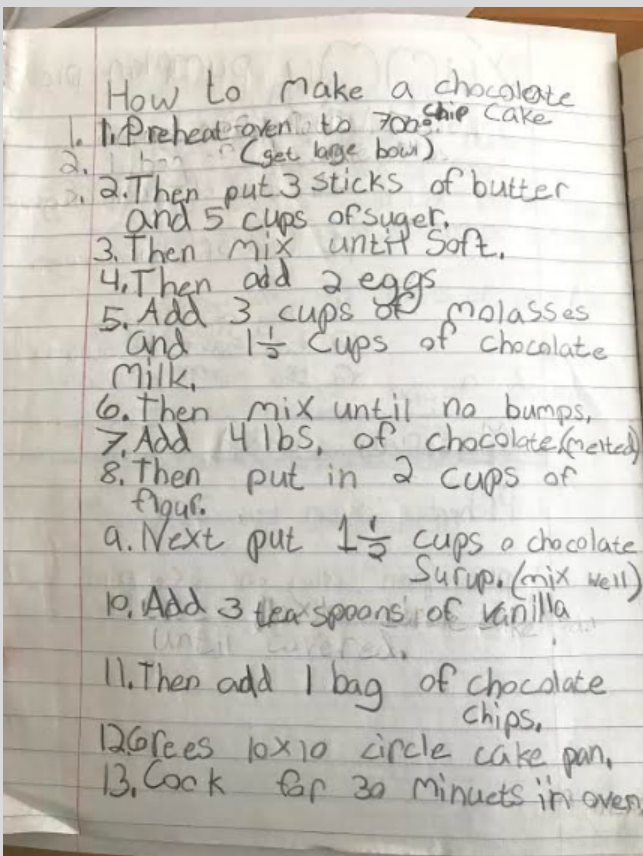 How to make a chocolate
chip cake
1. 1. Preheat oven to 700°
2. (get large bowl)
2. Then put 3 sticks of butter
and 5 cups of suger.
3. Then mix until Soft.
4. Then add 2 eggs
5. Add 3 cups of molasses
and 1 1/2 cups of chocolate
Milk.
6. Then mix until no bumps,
7. Add 4 lbs, of chocolate, (melted)
8. Then put in 2 cups of
flour.
9. Next put 1 1/2 cups o chocolate
Surup. (mix well)
10. Add 3 teaspoons of vanilla
until covered.
11. Then add 1 bag of chocolate
chips,
12 Grees 10x10 circle cake pan,
13. Cock for 30 Minuets in oven